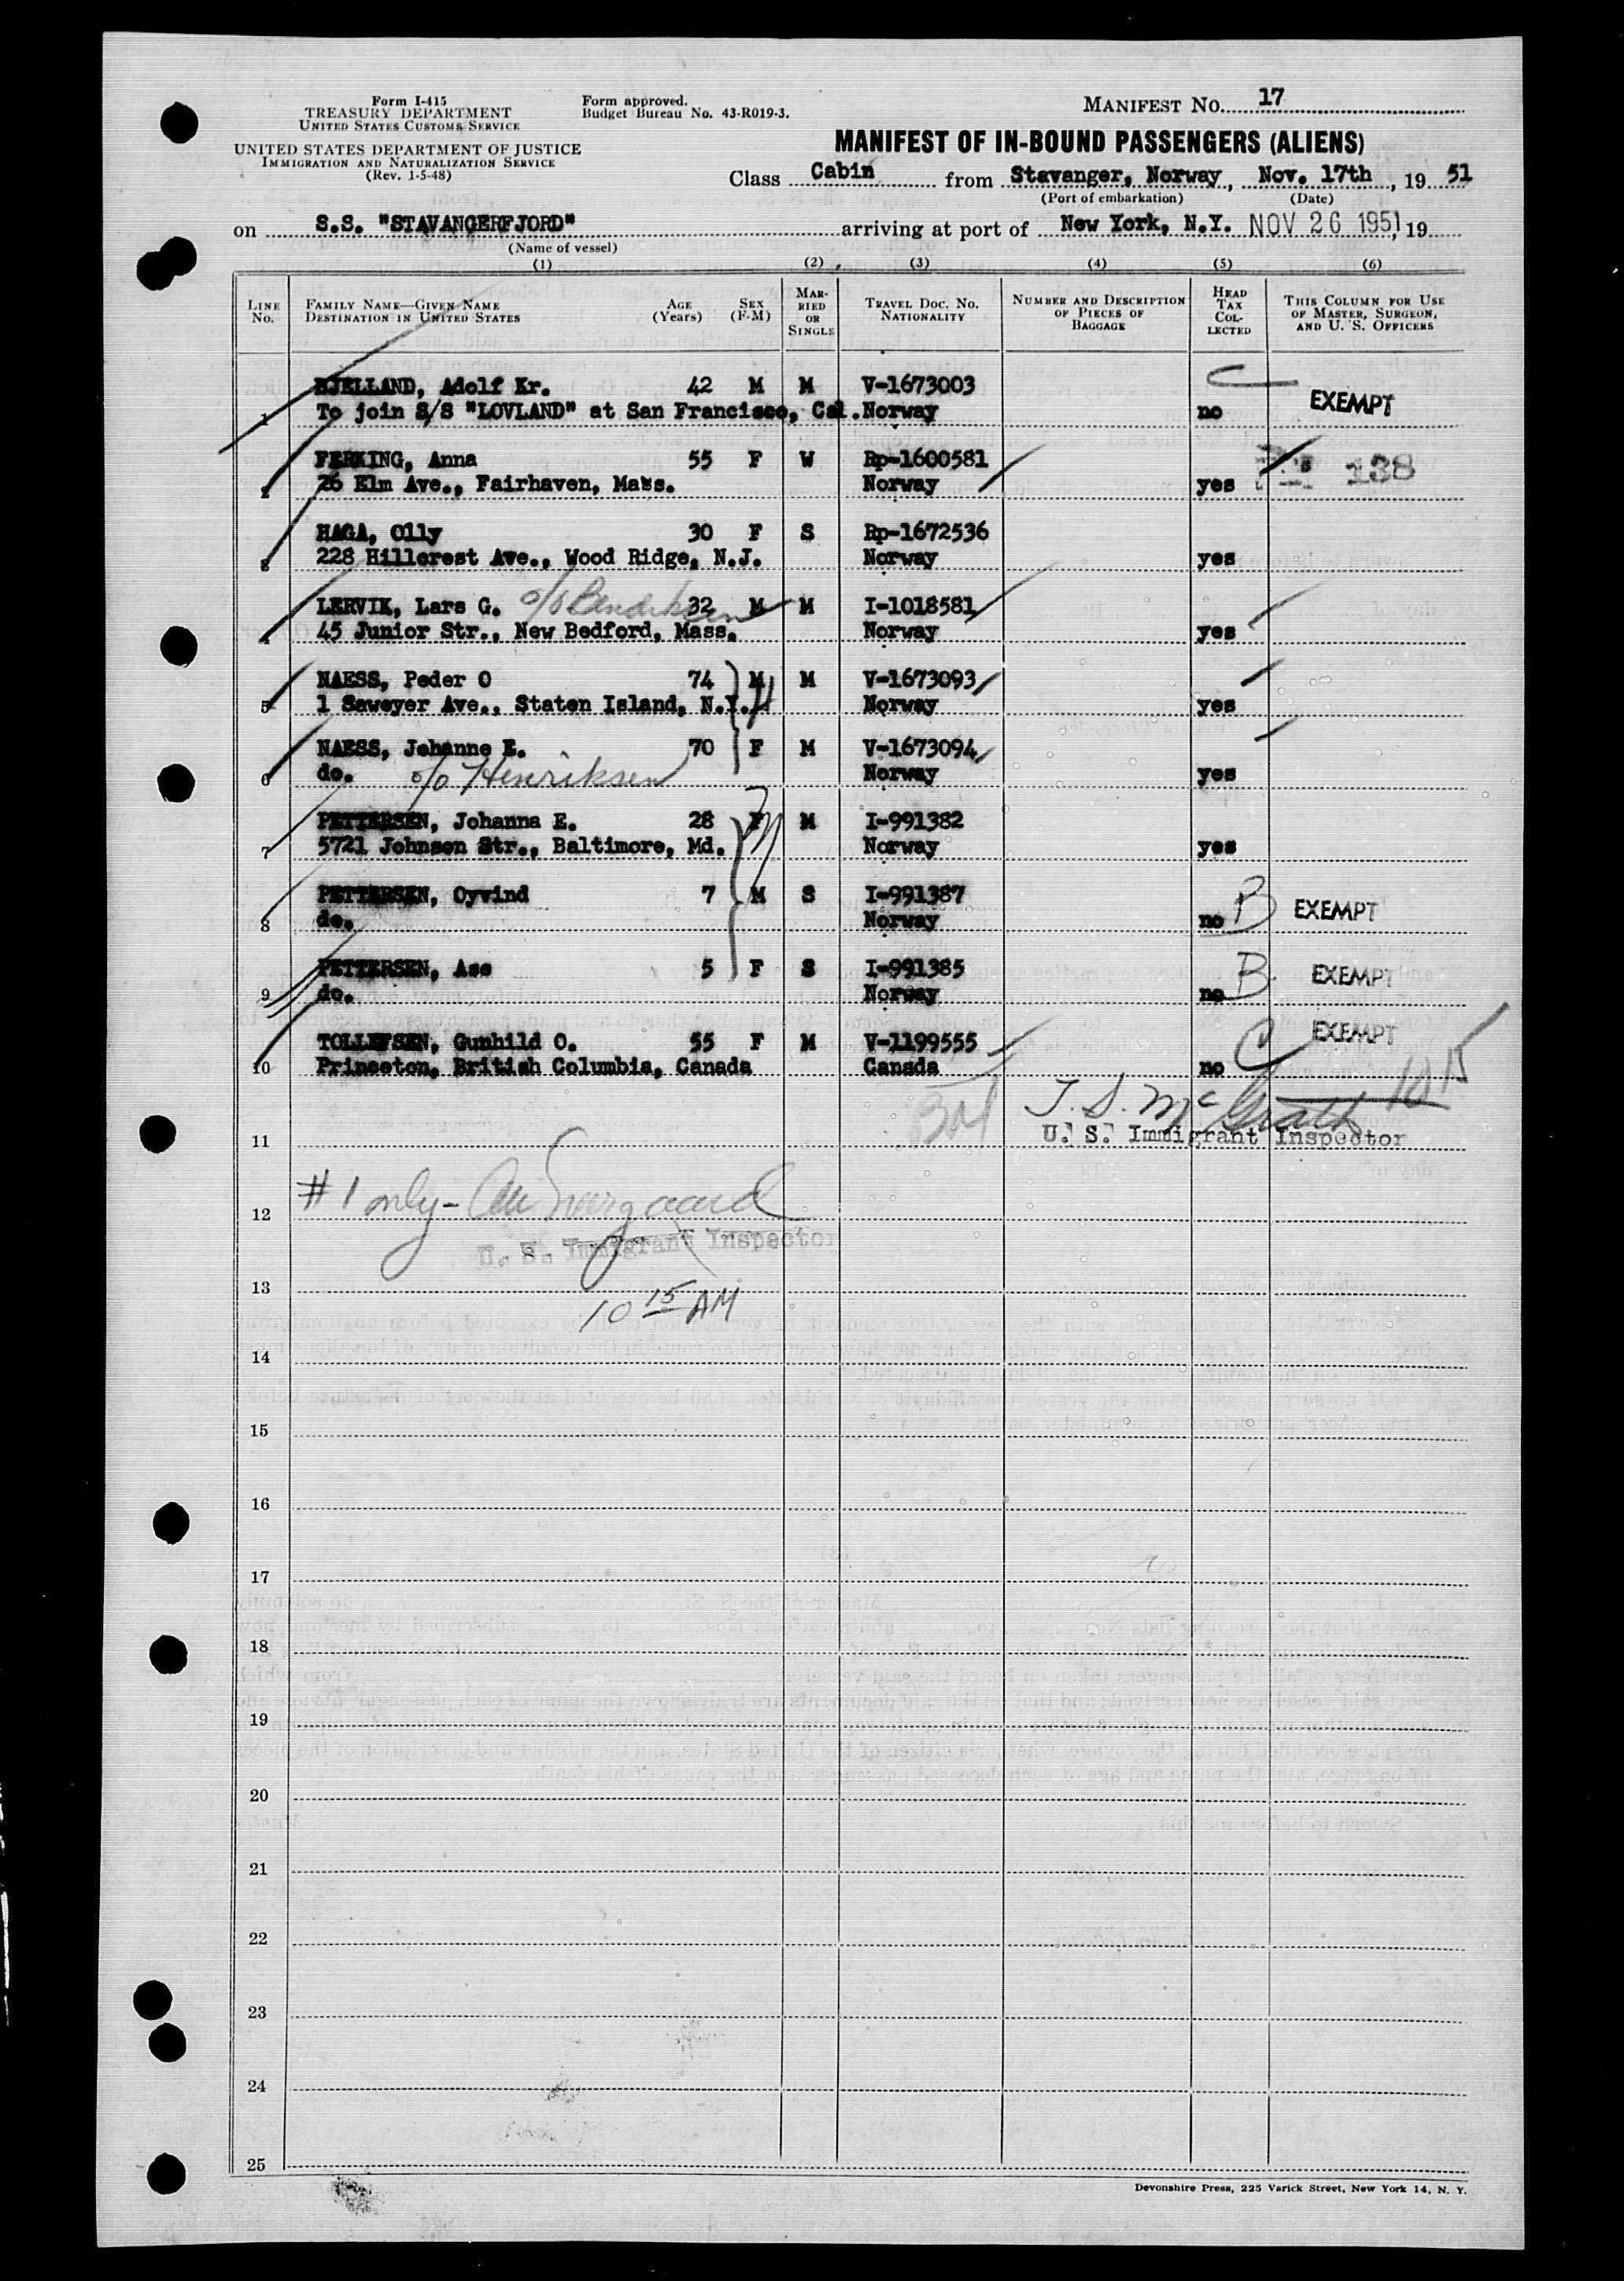 Form I-415
TREASURY DEPARTMENT
UNITED STATES CUSTOMS SERVICE
UNITED STATES DEPARTMENT OF JUSTICE
IMMIGRATION AND NATURALIZATION SERVICE
(Rev. 1-5-48)
Form approved.
Budget Bureau No. 43-R019-3.
MANIFEST NO. 17
MANIFEST OF IN-BOUND PASSENGERS (ALIENS)
Class Cabin from Stavanger, Norway, Nov. 17th, 19 51
(Port of embarkation) (Date)
on S.S. "STAVANGERFJORD" arriving at port of New York, N.Y. NOV 26 1951, 19
(Name of vessel)
(1) (2) (3) (4) (5) (6)
LINE NO. FAMILY NAME—GIVEN NAME DESTINATION IN UNITED STATES AGE (Years) SEX (F-M) MARRIED OR SINGLE TRAVEL DOC. NO. NATIONALITY NUMBER AND DESCRIPTION OF PIECES OF BAGGAGE HEAD TAX COLLECTED THIS COLUMN FOR USE OF MASTER, SURGEON, AND U. S. OFFICERS
HJELLAND, Adolf Kr. 42 M M V-1673003 C EXEMPT
1 To join S/S "LOVLAND" at San Francisco, Cal. Norway no
FERKING, Anna 55 F W Rp-1600581 138
2 26 Elm Ave., Fairhaven, Mass. Norway yes
HAGA, Olly 30 F S Rp-1672536
3 228 Hillcrest Ave., Wood Ridge, N.J. Norway yes
LERVIK, Lars G. c/o Bendiksen 32 M M I-1018581
4 45 Junior Str., New Bedford, Mass. Norway yes
NAESS, Peder O 74 M M V-1673093
5 1 Saweyer Ave., Staten Island, N.Y. Norway yes
NAESS, Johanne E. 70 F M V-1673094
6 do. c/o Henriksen Norway yes
PETTERSEN, Johanna E. 28 F M I-991382
7 5721 Johnsen Str., Baltimore, Md. Norway yes
PETTERSEN, Oyvind 7 M S I-991387 B EXEMPT
8 do. Norway no
PETTERSEN, Ase 5 F S I-991385 B EXEMPT
9 do. Norway no
TOLLEFSEN, Gunhild O. 55 F M V-1199555 C EXEMPT
10 Princeton, British Columbia, Canada Canada no
10 15
T. S. McGrath
11 U. S. Immigrant Inspector
12 #1 only-
U. S. Immigrant Inspector
13
10 15 AM
14
15
16
17
18
19
20
21
22
23
24
25
Devonshire Press, 225 Varick Street, New York 14, N. Y.